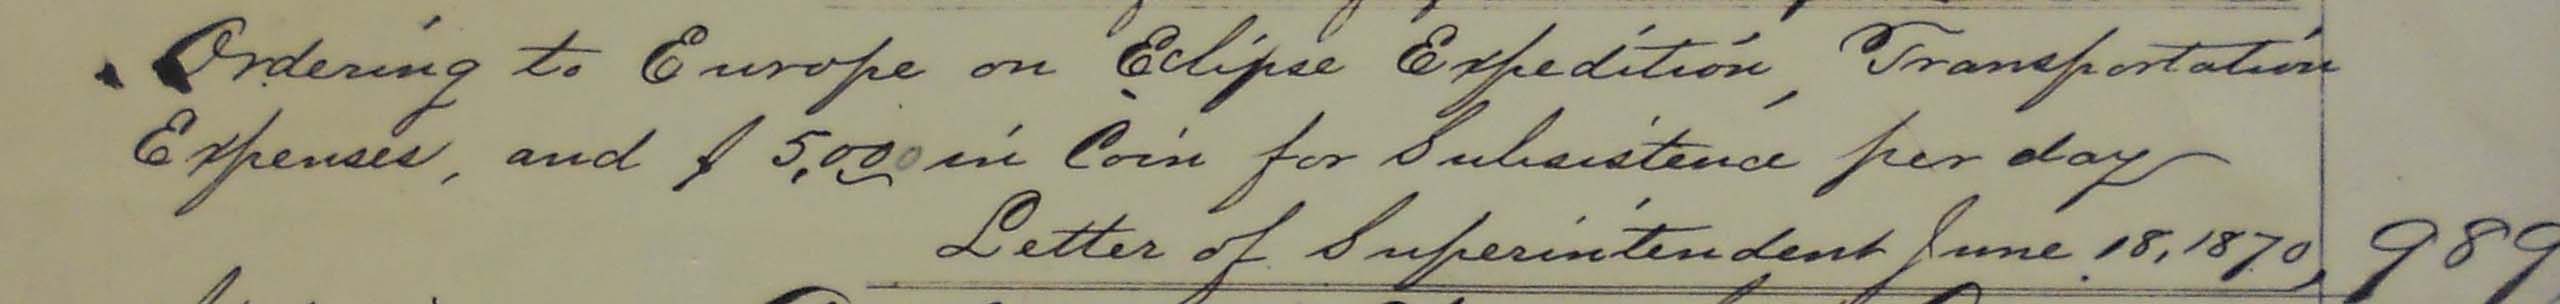 Ordering to Europe on Eclipse Expedition, Transportation
Expenses, and $ 5,00 in Coin for Subsistence per day
Letter of Superintendent June 18, 1870, 989